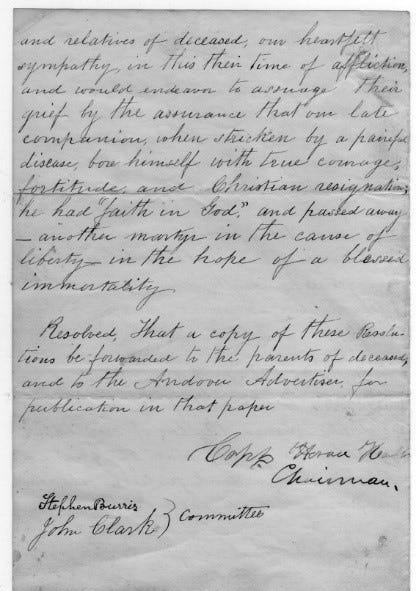 and relatives of deceased, our heartfelt
sympathy, in this their time of affliction,
and would endeavor to assuage their
grief by the assurance that our late
companion, when stricken by a painful
disease, bore himself with true courage,
fortitude, and Christian resignation;
he had "faith in God", and passed away
– another martyr in the cause of
liberty – in the hope of a blessed
immortality.
Resolved, That a copy of these Resolu-
tions be forwarded to the parents of deceased,
and to the Andover Advertiser, for
publication in that paper
Chairman.
Stephen Burris
John Clark } Committee